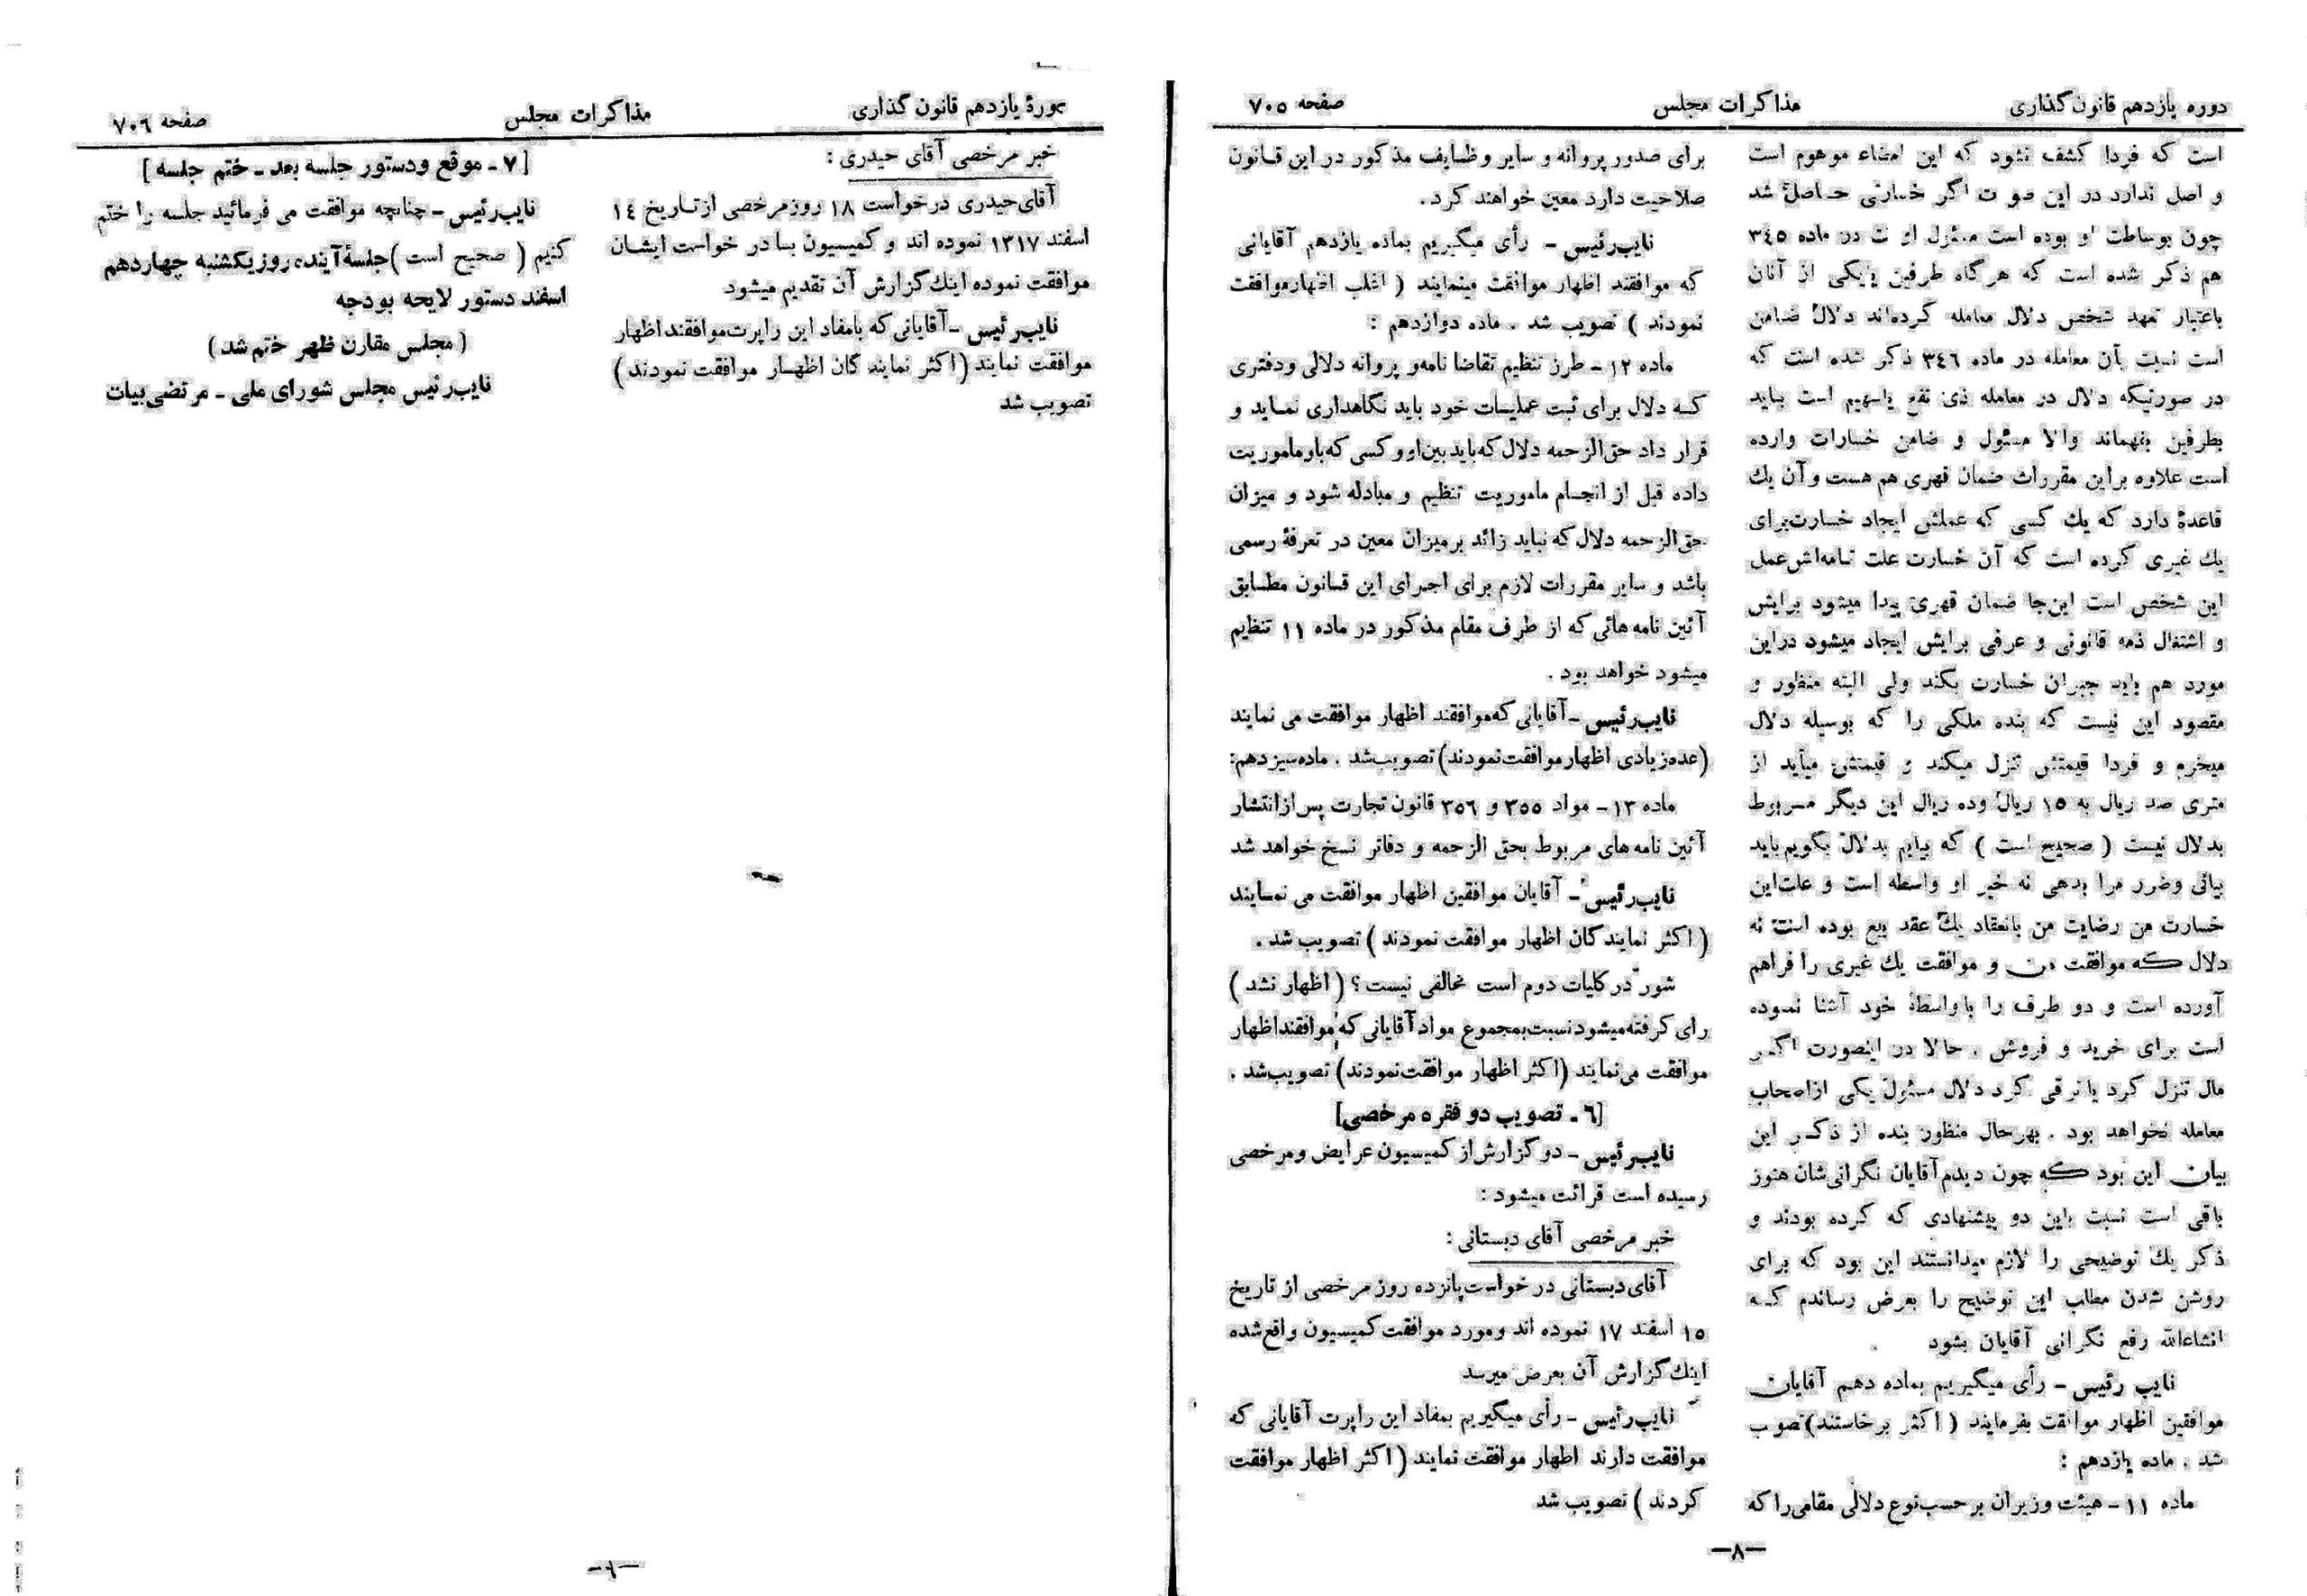 دوره یازدهم قانون گذاری
مذاکرات مجلس
صفحه ۷۰۵
است که فردا کشف نشود که این امضاء موهوم است
و اصل ندارد در این صو ت اگر خسارتی حاصل شد
چون بوساطت او بوده است مسئول او ت در ماده ۳٤٥
هم ذکر شده است که هرگاه طرفین یا یکی از آنان
باعتبار تعهد شخص دلال معامله کرده‌اند دلال ضامن
است نسبت بآن معامله در ماده ۳٤٦ ذکر شده است که
در صورتیکه دلال در معامله ذی نفع یا سهیم است باید
بطرفین بفهماند والا مسئول و ضامن خسارات وارده
است علاوه براین مقررات ضمان قهری هم هست و آن یك
قاعدهٔ دارد که یك کسی که عملش ایجاد خسارت برای
یك غیری کرده است که آن خسارت علت تامه‌اش عمل
این شخص است این‌جا ضمان قهری پیدا میشود برایش
و اشتغال ذمه قانونی و عرفی برایش ایجاد میشود دراین
مورد هم باید جبران خسارت بکند ولی البته منظور و
مقصود این نیست که بنده ملکی را که بوسیله دلال
میخرم و فردا قیمتش تنزل میکند و قیمتش میآید از
متری صد ریال به ۱۵ ریال وده ریال این دیگر مربوط
بدلال نیست ( صحیح است ) که بیایم بدلال بگویم باید
بیائی وضرر مرا بدهی نه خیر او واسطه است و علت‌این
خسارت من رضایت من بانعقاد یك عقد بیع بوده است نه
دلال که موافقت من و موافقت یك غیری را فراهم
آورده است و دو طرف را باواسطهٔ خود آشنا نموده
است برای خرید و فروش . حالا در اینصورت اگر
مال تنزل کرد یا ترقی کرد دلال مسئول یکی ازاصحاب
معامله نخواهد بود . بهرحال منظور بنده از ذکر این
بیان این بود که چون دیدم آقایان نگرانی‌شان هنوز
باقی است نسبت باین دو پیشنهادی که کرده بودند و
ذکر یك توضیحی را لازم میدانستند این بود که برای
روشن شدن مطلب این توضیح را بعرض رساندم که
انشاءالله رفع نگرانی آقایان بشود
نایب رئیس - رأی میگیریم بماده دهم آقایان
موافقین اظهار موافقت بفرمایند ( اکثر برخاستند ) تصوب
شد . ماده یازدهم :
ماده ۱۱ - هیئت وزیران برحسب نوع دلالی مقامی را که
برای صدور پروانه و سایر وظایف مذکور در این قانون
صلاحیت دارد معین خواهند کرد .
نایب رئیس - رأی میگیریم بماده یازدهم آقایانی
که موافقند اظهار موافقت مینمایند ( اغلب اظهارموافقت
نمودند ) تصویب شد . ماده دوازدهم :
ماده ۱۲ - طرز تنظیم تقاضا نامه‌و پروانه دلالی و دفتری
که دلال برای ثبت عملیات خود باید نگاهداری نماید و
قرار داد حق‌الزحمه دلال که باید بین‌او و کسی که باو ماموریت
داده قبل از انجام ماموریت تنظیم و مبادله شود و میزان
حق‌الزحمه دلال که نباید زائد برمیزان معین در تعرفهٔ رسمی
باشد و سایر مقررات لازم برای اجرای این قانون مطابق
آئین نامه هائی که از طرف مقام مذکور در ماده ۱۱ تنظیم
میشود خواهد بود .
نایب رئیس - آقایانی که موافقند اظهار موافقت می نمایند
(عده زیادی اظهار موافقت نمودند) تصویب شد . ماده سیزدهم:
ماده ۱۳ - مواد ۳۵۵ و ۳۵٦ قانون تجارت پس از انتشار
آئین نامه های مربوط بحق الزحمه و دفاتر نسخ خواهد شد
نایب رئیس - آقایان موافقین اظهار موافقت می نمایند
( اکثر نمایندگان اظهار موافقت نمودند ) تصویب شد .
شور در کلیات دوم است مخالفی نیست ؟ ( اظهار نشد )
رای گرفته میشود نسبت بمجموع مواد آقایانی که موافقند اظهار
موافقت می‌نمایند (اکثر اظهار موافقت نمودند) تصویب شد .
[٦ - تصویب دو فقره مرخصی]
نایب رئیس - دو گزارش از کمیسیون عرایض و مرخصی
رسیده است قرائت میشود :
خبر مرخصی آقای دبستانی :
آقای دبستانی درخواست پانزده روز مرخصی از تاریخ
۱۵ اسفند ۱۷ نموده اند و مورد موافقت کمیسیون واقع شده
اینك گزارش آن بعرض میرسد
نایب رئیس - رأی میگیریم بمفاد این راپرت آقایانی که
موافقت دارند اظهار موافقت نمایند ( اکثر اظهار موافقت
کردند ) تصویب شد
—۸—
دورهٔ یازدهم قانون گذاری
مذاکرات مجلس
صفحه ۷۰٦
خبر مرخصی آقای حیدری :
آقای حیدری درخواست ۱۸ روز مرخصی از تاریخ ۱٤
اسفند ۱۳۱۷ نموده اند و کمیسیون با در خواست ایشان
موافقت نموده اینك گزارش آن تقدیم میشود
نایب رئیس - آقایانی که بامفاد این راپرت موافقند اظهار
موافقت نمایند (اکثر نمایندگان اظهار موافقت نمودند)
تصویب شد
[ ۷ - موقع و دستور جلسه بعد - ختم جلسه ]
نایب رئیس - چنانچه موافقت می فرمائید جلسه را ختم
کنیم ( صحیح است ) جلسهٔ آینده روز یکشنبه چهاردهم
اسفند دستور لایحه بودجه
( مجلس مقارن ظهر ختم شد )
نایب رئیس مجلس شورای ملی - مرتضی بیات